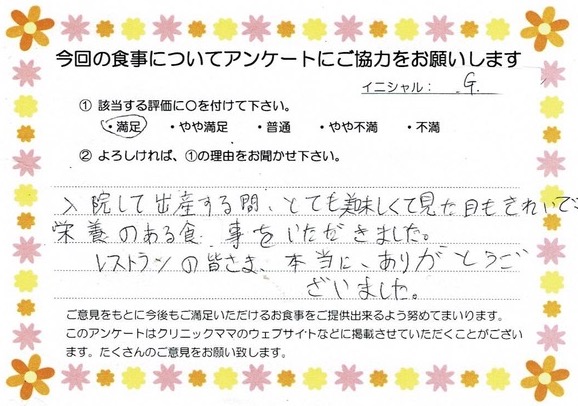 今回の食事についてアンケートにご協力をお願いします
イニシャル： G.
① 該当する評価に○を付けて下さい。
・満足 ・やや満足 ・普通 ・やや不満 ・不満
② よろしければ、①の理由をお聞かせ下さい。
入院して出産する間、とても美味しくて見た目もきれいで
栄養のある食事をいただきました。
レストランの皆さま、本当に、ありがとうご
ざいました。
ご意見をもとに今後もご満足いただけるお食事をご提供出来るよう努めてまいります。
このアンケートはクリニックママのウェブサイトなどに掲載させていただくことがござい
ます。たくさんのご意見をお願い致します。